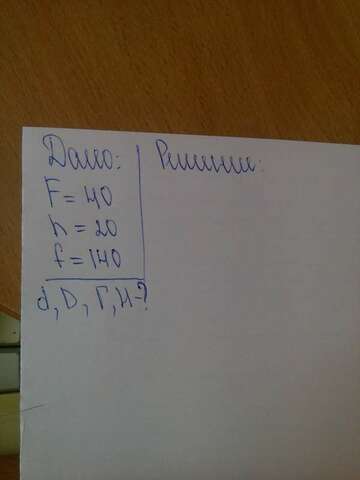 Дано:
F = 40
h = 20
f = 140
d, D, Г, H - ?
Решение: